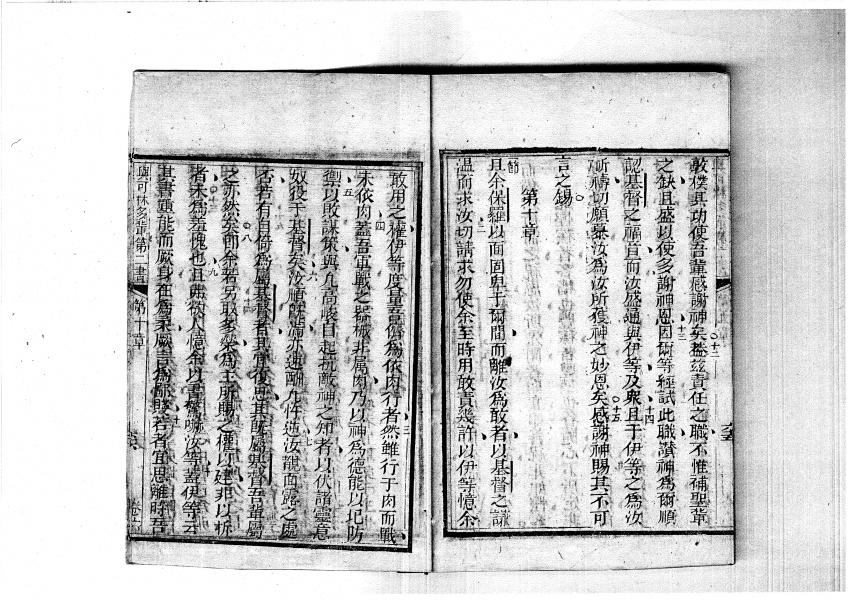 敦樸其功使吾輩感謝神矣蓋兹責任之職不惟補聖輩
之缺且盛以使多謝神恩因爾等經試此職讚神爲爾順
認基督之福音而汝盛通與伊等及衆且于伊等之爲汝
祈禱切願 汝爲汝所獲神之妙恩矣感謝神賜其不可
言之錫
第十章
節 且余保羅以面固卑于爾間而離汝爲敢者以基督之謙
温而求汝切請求勿使余至時用敢責幾許以伊等憶余
敢用之權伊等度量吾儕爲依肉行者然雖行于肉而戰
未依肉蓋吾軍戰之器械非屬肉乃以神爲德能以圮防
禦以敗謀策與凡高峻自起抗敵神之知者以伏諸靈意
奴役于基督矣汝順 滿亦速酬凡忤逆汝覩面露之處
否若有自倚爲屬基督者其宜復思其既屬基督吾輩屬
之亦然矣即余若另取多榮爲主所賜之權以建非以拆
者未爲羞愧也且無欲人憶余以書 嚇汝等蓋伊等云
其書 能而厥身在爲柔厥言爲鄙賤若者宜思離時吾
與可林多輩第二書 第十章